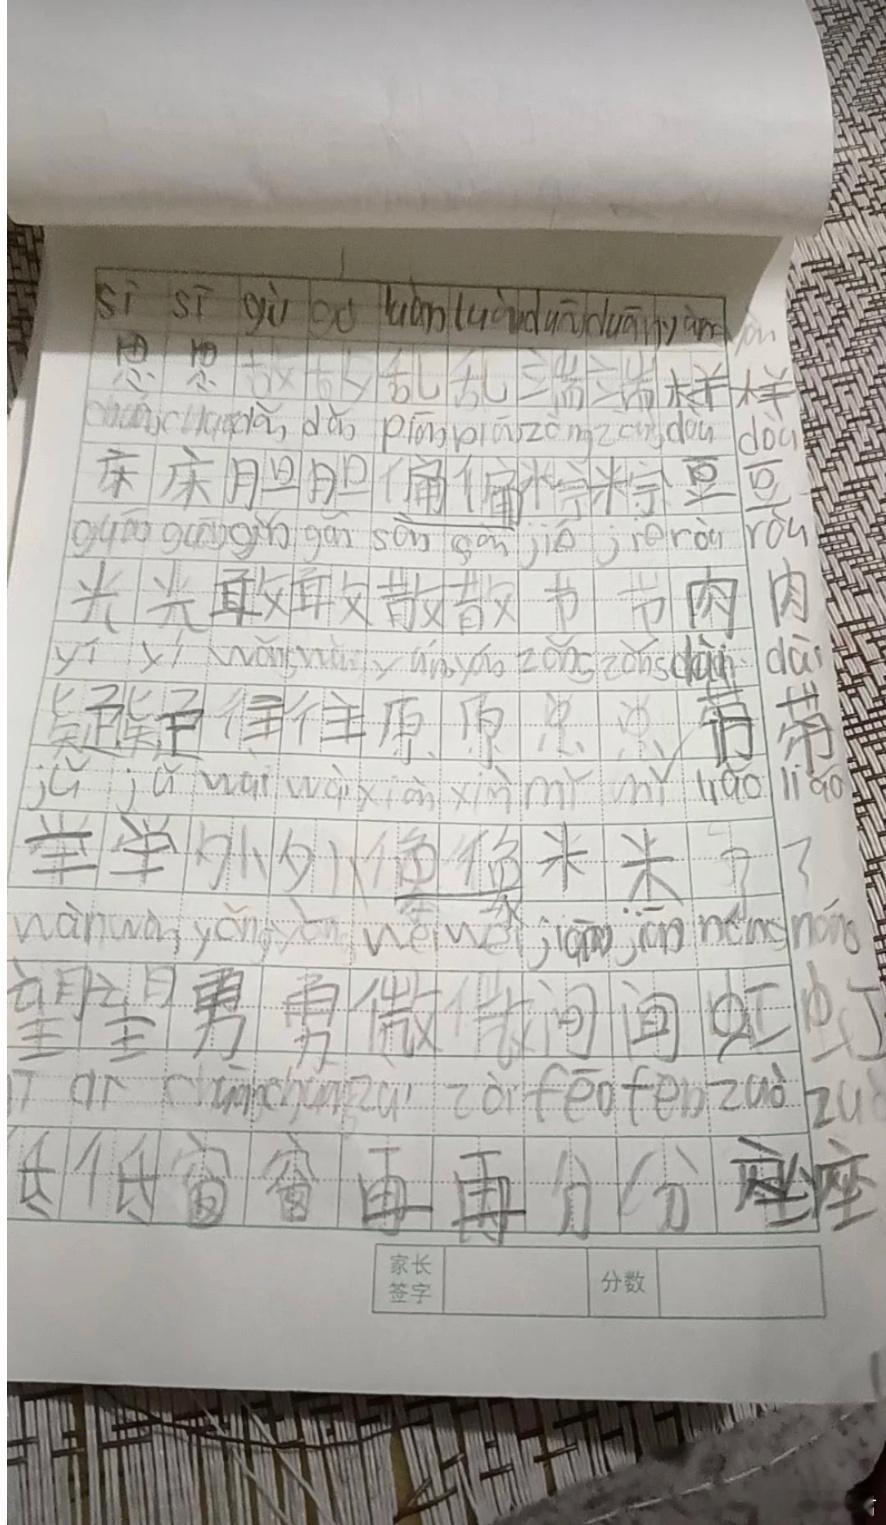 sī sī gù gù luàn luàn duān duān yàng
思 思 故 故 乱 乱 端 端 样 样
chuáng chuáng dǎn dǎn piān piān zòng zòng dòu dòu
床 床 胆 胆 偏 偏 粽 粽 豆 豆
guāng guāng gǎn gǎn sàn sàn jié jié ròu ròu
光 光 敢 敢 散 散 节 节 肉 肉
yí yí wǎng wǎng yuán yuán zǒng zǒng dài dài
疑 疑 往 往 原 原 总 总 带 带
jǔ jǔ wài wài xiàn mǐ mǐ liǎo liǎo
举 举 外 外 像 像 米 米 了 了
wàng wàng yǒng yǒng wēi wēi jiān jiān
望 望 勇 勇 微 微 间 间 虹 虹
chuāng chuāng zài zài fēn fēn zuò zuò
低 低 窗 窗 再 再 分 分 座 座
家长签字 分数